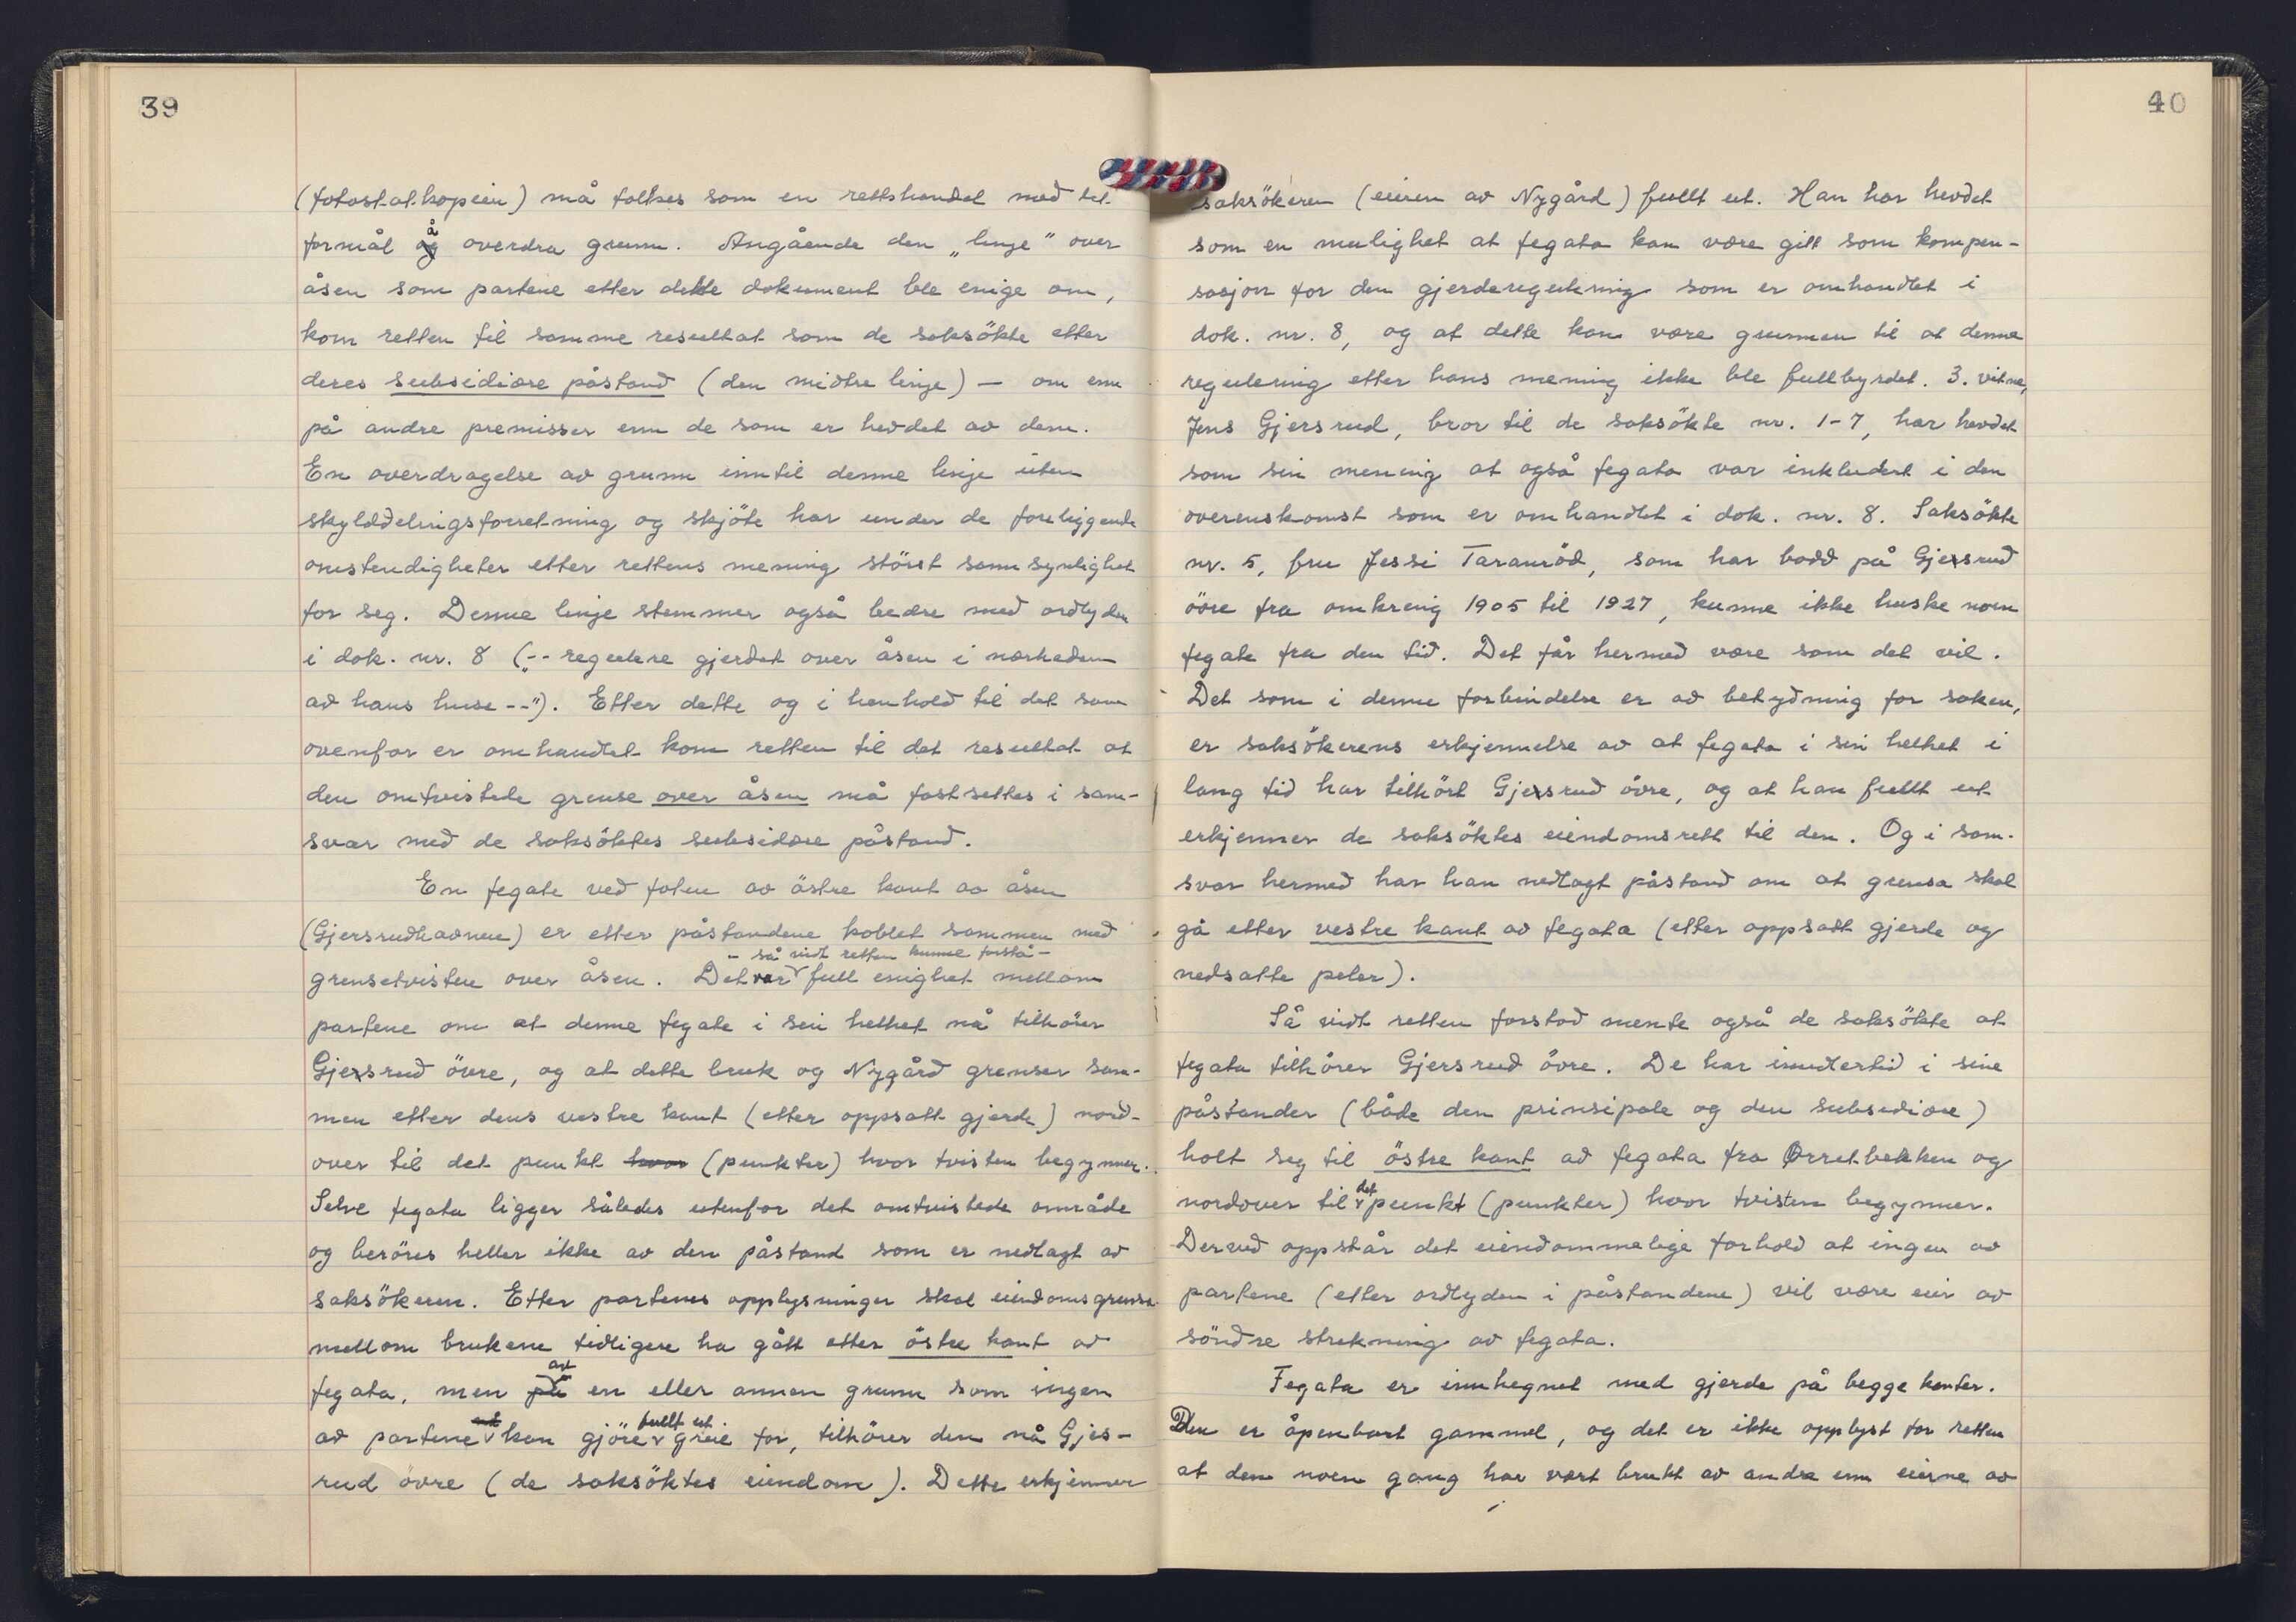 39
(fotostatkopien) må tolkes som en rettshandel med det
formål å overdra grunn. Angående den „linje" over
åsen som partene etter dette dokument ble enige om,
kom retten til samme resultat som de saksökte etter
deres subsidiære påstand (den midtre linje) — om enn
på andre premisser enn de som er hevdet av dem.
En overdragelse av grunn inntil denne linje uten
skylddelingsforretning og skjöte har under de foreliggende
omstendigheter etter rettens mening störst sannsynlighet
for seg. Denne linje stemmer også bedre med ordlyden
i dok. nr. 8 („-- regulere gjerdet over åsen i nærheden
av hans huse --"). Etter dette og i henhold til det som
ovenfor er omhandlet kom retten til det resultat at
den omtvistede grense over åsen må fastsettes i sam-
svar med de saksöktes subsidære påstand.
En fegate ved foten av östre kant av åsen
(Gjersrudhavnen) er etter påstandene koblet sammen med
- så vidt retten kunne forstå -
grensetvisten over åsen. Det var full enighet mellom
partene om at denne fegate i sin helhet nå tilhörer
Gjersrud övre, og at dette bruk og Nygård grenser sam-
men etter dens vestre kant (etter oppsatt gjerde) nord-
over til det punkt hvor (punkter) hvor tvisten begynner.
Selve fegata ligger således utenfor det omtvistede område
og beröres heller ikke av den påstand som er nedlagt av
saksökeren. Etter partenes opplysninger skal eiendomsgrensa
mellom brukene tidligere ha gått etter östre kant av
av
fegata, men på en eller annen grunn som ingen
fullt ut
av partene kan gjöre greie for, tilhörer den nå Gjes-
rud övre (de saksöktes eiendom). Dette erkjenner
40
saksökeren (eieren av Nygård) fullt ut. Han har hevdet
som en mulighet at fegata kan være gitt som kompen-
sasjon for den gjerderegulering som er omhandlet i
dok. nr. 8, og at dette kan være grunnen til at denne
regulering etter hans mening ikke ble fullbyrdet. 3. vitne,
Jens Gjersrud, bror til de saksökte nr. 1-7, har hevdet
som sin mening at også fegata var inkludert i den
overenskomst som er omhandlet i dok. nr. 8. Saksökte
nr. 5, fru Jessi Taranröd, som har bodd på Gjersrud
övre fra omkring 1905 til 1927, kunne ikke huske noen
fegate fra den tid. Det får hermed være som det vil.
Det som i denne forbindelse er av betydning for saken,
er saksökerens erkjennelse av at fegata i sin helhet i
lang tid har tilhört Gjersrud övre, og at han fullt ut
erkjenner de saksöktes eiendomsrett til den. Og i sam-
svar hermed har han nedlagt påstand om at grensa skal
gå etter vestre kant av fegata (etter oppsatt gjerde og
nedsatte peler).
Så vidt retten forstod mente også de saksökte at
fegata tilhörer Gjersrud övre. De har imidlertid i sine
påstander (både den prinsipale og den subsidiære)
holt seg til östre kant av fegata fra Ørretbekken og
det
nordover til punkt (punkter) hvor tvisten begynner.
Derved oppstår det eiendommelige forhold at ingen av
partene (etter ordlyden i påstandene) vil være eier av
söndre strekning av fegata.
Fegata er innhegnet med gjerde på begge kanter.
Den er åpenbart gammel, og det er ikke opplyst for retten
at den noen gang har vært brukt av andre enn eierne av